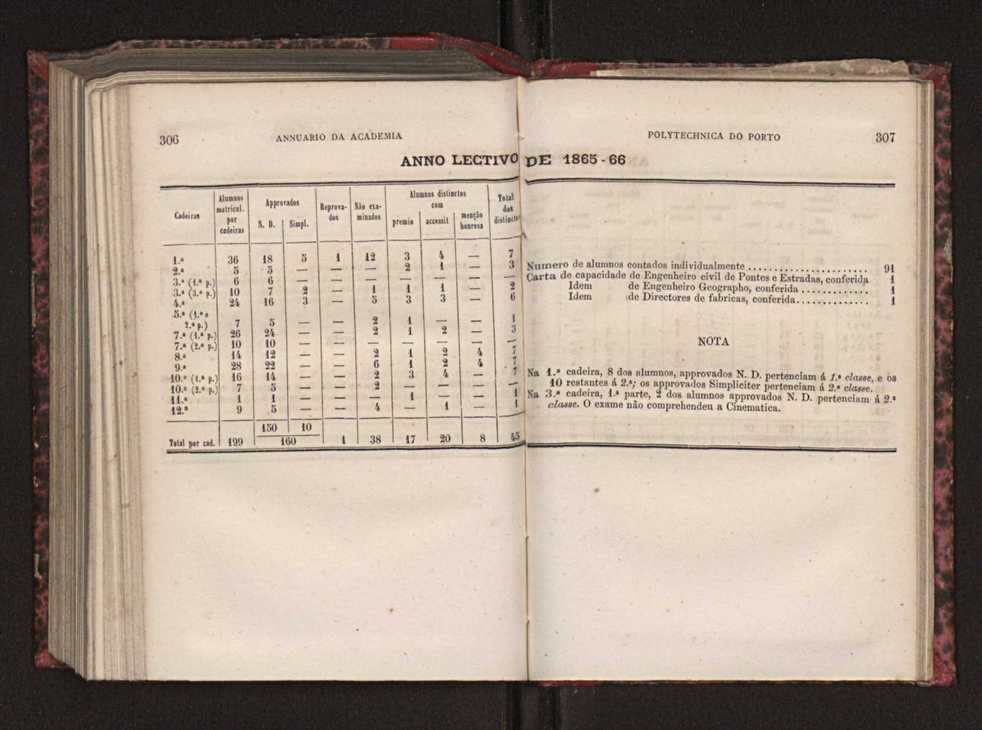 306 ANNUARIO DA ACADEMIA
POLYTECHNICA DO PORTO 307
ANNO LECTIVO DE 1865-66
Cadeiras | Alumnos matricul. por cadeiras | Approvados N. D. | Approvados Simpl. | Reprovados | Não examinados | Alumnos distinctos com premio | accessit | menção honrosa | Total dos distinctos
1.ª 36 18 5 1 12 3 4 — 7
2.ª 5 5 — — — 2 1 — 3
3.ª (1.ª p.) 6 6 — — — — — — —
3.ª (3.ª p.) 10 7 2 — 1 1 1 — 2
4.ª 24 16 3 — 5 3 3 — 6
5.ª (1.ª e
2.ª p.) 7 5 — — 2 1 — — 1
7.ª (1.ª p.) 26 24 — — 2 1 2 — 3
7.ª (2.ª p.) 10 10 — — — — — — —
8.ª 14 12 — — 2 1 2 4 7
9.ª 28 22 — — 6 1 2 4 7
10.ª (1.ª p.) 16 14 — — 2 3 4 — 7
10.ª (2.ª p.) 7 5 — — 2 — — — —
11.ª 1 1 — — — 1 — — 1
12.ª 9 5 — — 4 — 1 — 1
150 10
Total por cad. 199 160 1 38 17 20 8 45
Numero de alumnos contados individualmente ..................... 91
Carta de capacidade de Engenheiro civil de Pontes e Estradas, conferida 1
Idem de Engenheiro Geographo, conferida ............ 1
Idem de Directores de fabricas, conferida............. 1
NOTA
Na 1.ª cadeira, 8 dos alumnos, approvados N. D. pertenciam á 1.ª classe, e os
10 restantes á 2.ª; os approvados Simpliciter pertenciam á 2.ª classe.
Na 3.ª cadeira, 1.ª parte, 2 dos alumnos approvados N. D. pertenciam á 2.ª
classe. O exame não comprehendeu a Cinematica.